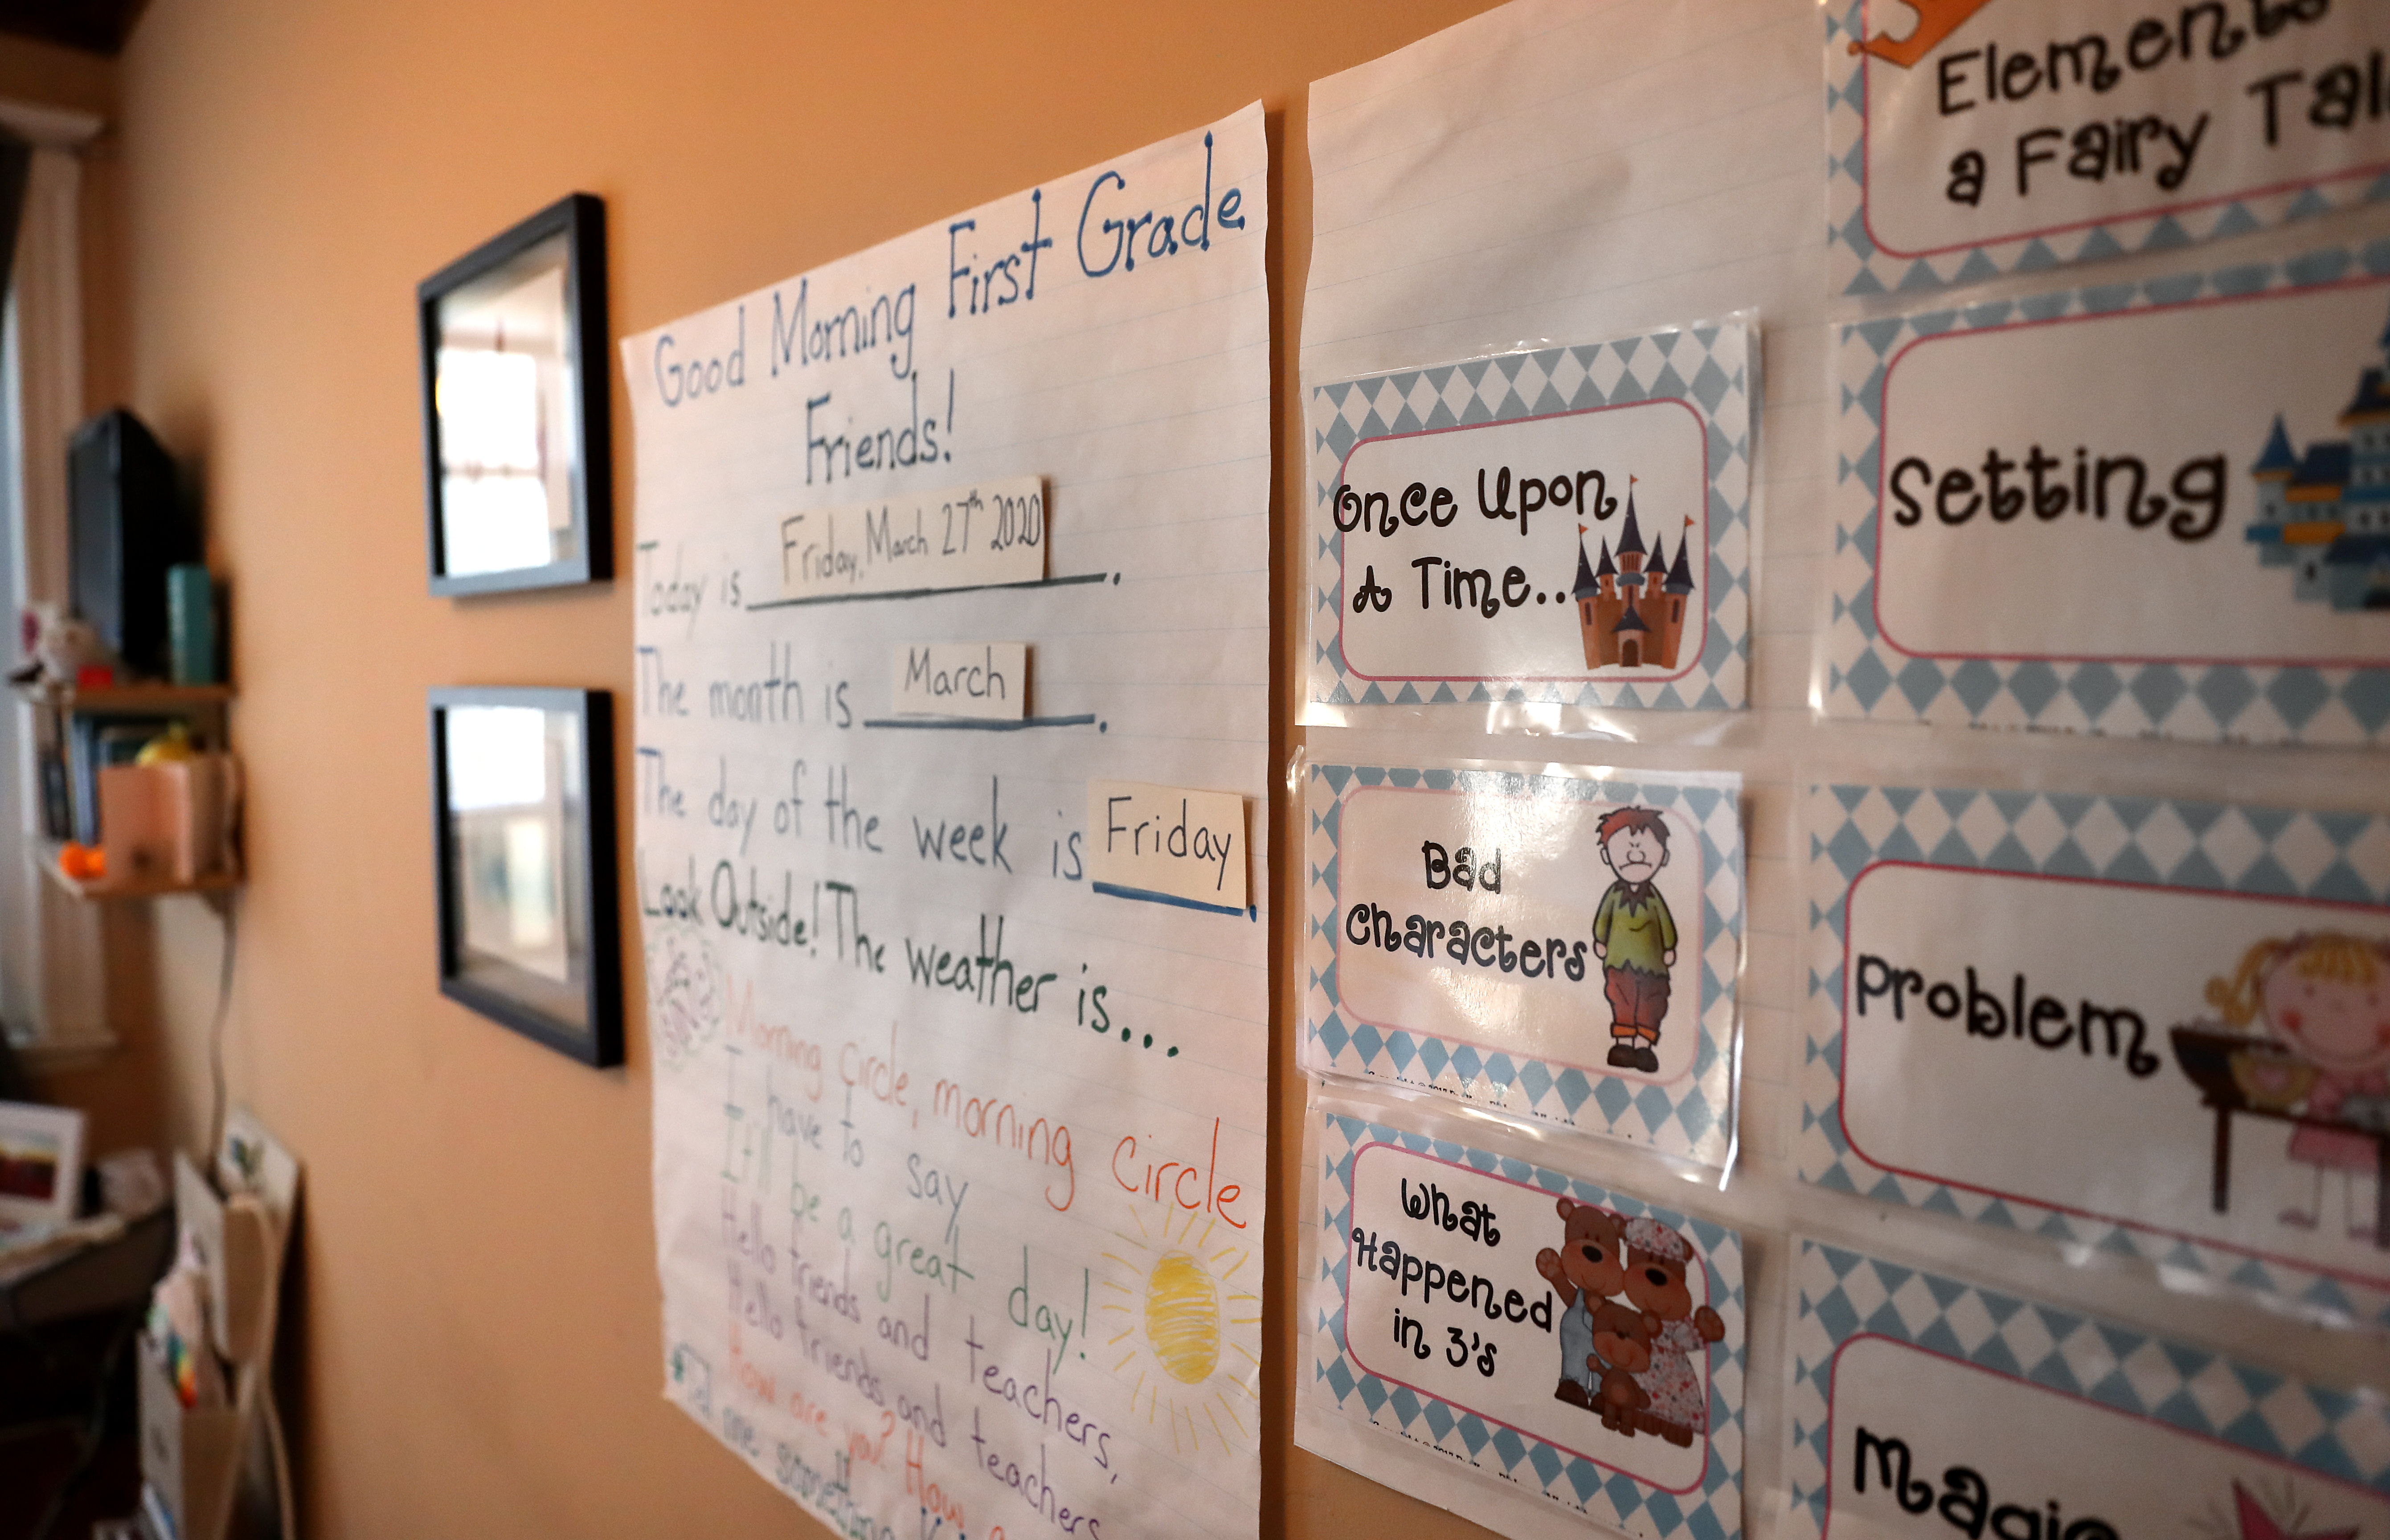 Good Morning First Grade
Friends!
Today is Friday, March 27th 2020.
The month is March.
The day of the week is Friday.
Look Outside! The weather is...
Morning Circle, morning circle
I have to say
It'll be a great day!
Hello friends and teachers,
Hello friends and teachers
How are you? How
me something
Once Upon
A Time..
Bad
Characters
What
Happened
in 3's
Elements
a Fairy
Setting
Problem
Magic